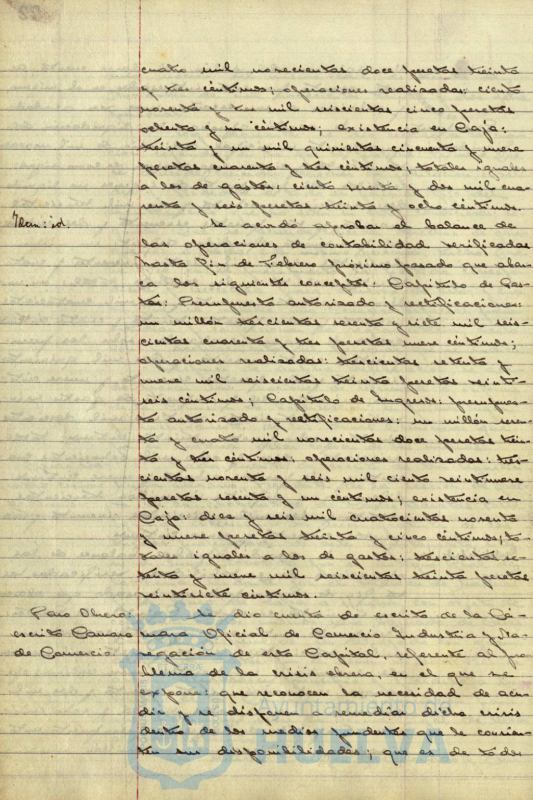 cuatro mil novecientas doce pesetas treinta
y tres céntimos; operaciones realizadas: ciento
noventa y tres mil seiscientas cinco pesetas
ochenta y un céntimos; existencia en Caja:
treinta y un mil quinientas cincuenta y nueve
pesetas cuarenta y tres céntimos; totales iguales
a los de gastos: ciento y dos mil cua
renta y seis pesetas treinta y ocho céntimos.
Idem: id. Se acordó aprobar el balance de
las operaciones de contabilidad verificadas
hasta fin de Febrero próximo pasado que abar
ca los siguientes conceptos: Capítulo de Gas
tos: Presupuesto autorizado y rectificaciones:
un millón trescientas y siete mil seis-
cientas cuarenta y tres pesetas nueve céntimos;
operaciones realizadas: trescientas setenta y
nueve mil seiscientas treinta pesetas veinti-
seis céntimos; Capítulo de Ingresos: presupues-
to autorizado y rectificaciones: un millón
y cuatro mil novecientas doce pesetas trein
ta y tres céntimos; operaciones realizadas: tres-
cientas noventa y seis mil ciento veintinueve
pesetas sesenta y un céntimos; existencia en
Caja: diez y seis mil cuatrocientas noventa
y nueve pesetas treinta y cinco céntimos; to-
tales iguales a los de gastos: trescientas se-
tenta y nueve mil seiscientas treinta pesetas
veintisiete céntimos.
Paro Obrero: Se dio cuenta de escrito de la Cá-
escrito Camara mara Oficial de Comercio Industria y Na-
de Comercio. vegación de esta Capital, referente al pro
blema de la crisis obrera, en el que se
expone: que reconocen la necesidad de acu-
dir y se disponen a remediar dicha crisis
dentro de los medios prudentes que le consien-
ten sus disponibilidades; que es de todos
Ayuntamiento de
HUELVA